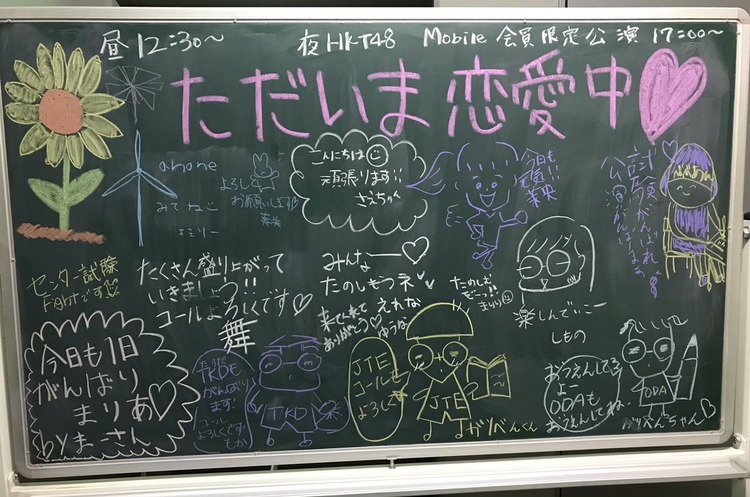 昼12:30~
夜HKT48 Mobile会員限定公演17:00~
ただいま恋愛中
anone
みてねこ
エミリー
よろしく
お願いします
こんにちは
頑張ります!!
さえちゃん
今日も
元気!!
試験がんばれ
センター試験
Fightです
たくさん盛り上がって
いきましょう!!
コールよろしくです♡
舞
みんなー♡
たのしもつネ
えれな
来てくれて
ありがとう♡
ゆうな
たのしむ
ぞーっ!!
まりり
楽しんでいこー
しもの
今日も1日
がんばり
まりあ♡
byまーさん
がんばり
ます!
コール
よろしくです!
もか
TKD
JTE
コールも
よろしく
JTE
ガリベんくん
おうえんしてる
よー
ODAも
おうえんしてね
ODA
ガリベんちゃん♡